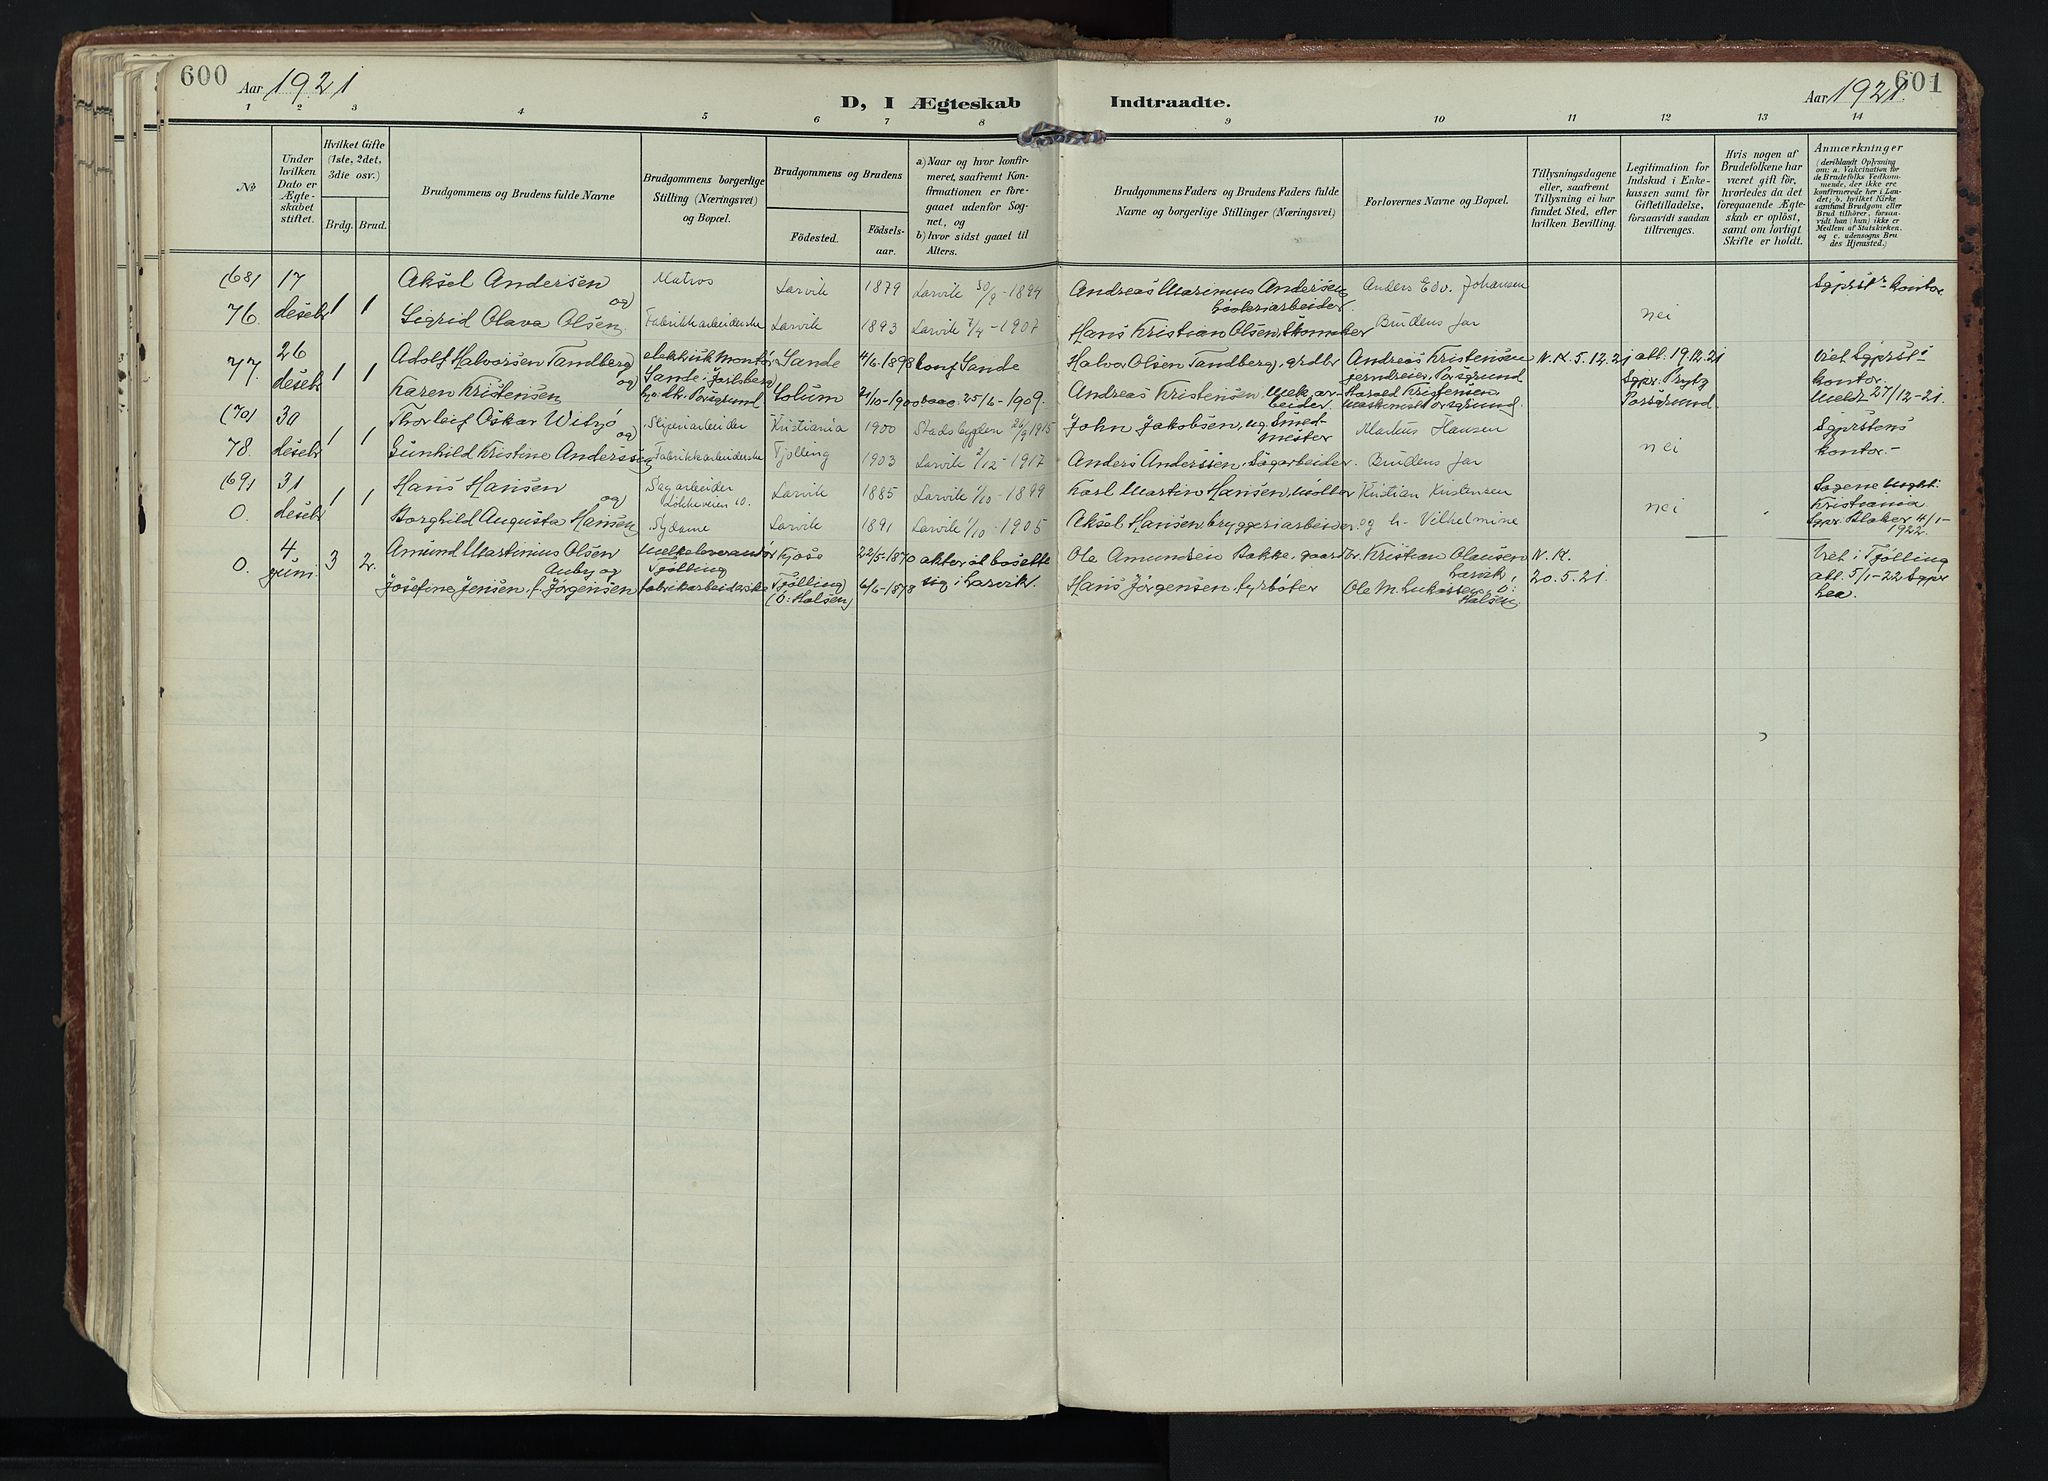 600
Aar 1921
D, I Ægteskab Indtraadte.
Aar 1921.
601
1 2 3 4 5 6 7 8 9 10 11 12 13 14
No
Under hvilken Dato er Ægte-skabet stiftet.
Hvilket Gifte (1ste, 2det, 3die osv.)
Brdg. Brud.
Brudgommens og Brudens fulde Navne
Brudgommens borgerlige Stilling (Næringsvei) og Bopæl.
Brudgommens og Brudens
Födested.
Födsels-aar.
a) Naar og hvor konfir-meret, saafremt Kon-firmationen er fore-gaaet udenfor Sog-net, og
b) hvor sidst gaaet til Alters.
Brudgommens Faders og Brudens Faders fulde Navne og borgerlige Stillinger (Næringsvei)
Forlovernes Navne og Bopæl.
Tillysningsdagene eller, saafremt Tillysning ei har fundet Sted, efter hvilken Bevilling.
Legitimation for Indskud i Enke-kassen samt for Giftetilladelse, forsaavidt saadan tiltrænges.
Hvis nogen af Brudefolkene har været gift för, hvorledes da det foregaaende Ægte-skab er oplöst, samt om lovligt Skifte er holdt.
Anmærkninger
(deriblandt Oplysning om: a. Vakcination for de Brudefolks Vedkom-mende, der ikke ere konfirmerede her i Lan-det; b. hvilket Kirke-samfund Brudgom eller Brud tilhörer, forsaa-vidt han (hun) ikke er Medlem af Statskirken, og c. udensogns Bru-des Hjemsted.)
(68) 17 Aksel Andersen Matros Larvik 1879 Larvik 30/9-1894 Andreas Marinius Andersen, Anders Edv. Johansen Sgprst's kontor
og
76. desebr 1 1 Sigrid Olava Olsen Fabrikkarbeiderske Larvik 1893 Larvik 7/4-1907 Hans Kristian Olsen, Skomaker Brudens far nei
77. 26 desebr 1 1 Adolf Halvorsen Tandberg elektrisk montør Sande 4/6-1898 konf Sande Halvor Olsen Tandberg, grdbr Andreas Kristensen N.K. 5.12.21 att. 19.12.21 Viet Sgprsts
og Sande i Jarlsberg jerndreier, Porsgrund Sgpr. Prytz kontor.
Karen Kristensen Porsgrund Solum 2/10-1900 25/6-1909. Andreas Kristensen, Harald Kristensen Porsgrund Meldt 27/12-21.
maskinist Porsgrund.
(70) 30 Thorleif Oskar Witsø Sliperiarbeider Kristiania 1900 Stadsbygden 26/9 1915 John Jakobsen, Smed- Markus Hansen Sgprstens
og mester
78. desebr 1 1 Gunhild Kristine Anderssen Fabrikkarbeiderske Tjølling 1903 Larvik 2/12-1917 Anders Anderssen, Sagarbeider. Brudens far nei kontor.-
(69) 31 Hans Hansen Sagarbeider Larvik 1885 Larvik 1/10-1899 Karl Martin Hansen, møller Kristian Kristensen Sagene
og 10. Kristiania
0. desebr 1 1 Borghild Augusta Hansen Sydame Larvik 1891 Larvik 1/10-1905 Aksel Hansen bryggeriarbeider og h. Vilhelmine nei Sgpr. Blaker 4/1-1922.
0. 4. juni 3 2. Amund Martinius Olsen Melkeleverandør Kjose 22/5-1870 akter at bosætte Ole Amundsen Bakke, gaardbr. Kristian Olausen N.K. Viet i Tjølling
Auby og Tjølling Tjølling Larvik,
Josefine Jensen, f. Jørgensen fabrikarbeiderske (Ö: Halsen) 6/6-1878 sig i Larvik. Hans Jørgensen, fyrbøter Ole M. Lukassen Ö: Halsen 20.5.21. att. 5/1-22 Sgpr Lea.